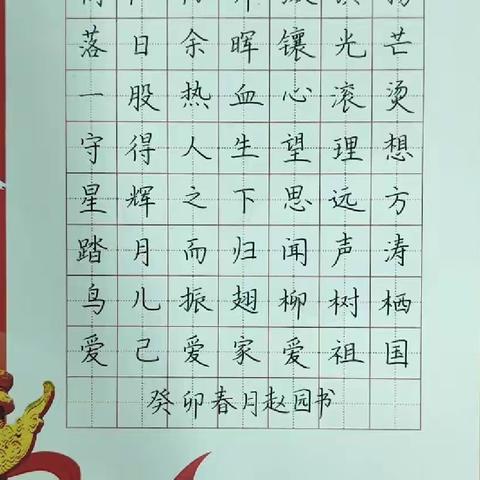 落日余晖镶光芒
一股热血心滚烫
守得人生望理想
星辉之下思远方
踏月而归闻声涛
鸟儿振翅柳树栖
爱己爱家爱祖国
癸卯春月赵园书